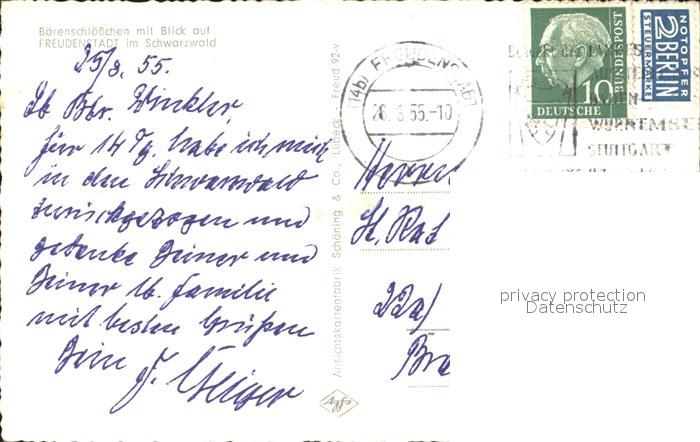 Bärenschlößchen mit Blick auf
FREUDENSTADT im Schwarzwald
25/8. 55.
Lb. Bbr. Winkler,
für 14 Tg. habe ich mich
in den Schwarzwald
zurückgezogen und
gedenke Deiner und
Deiner lb. Familie
mit besten Grüßen
Dein
Ansichtskartenfabrik Schöning & Co., Lübeck
Freud 92-v
Agfa
(14b) FREUDENSTADT
26.8.55.-10
DEUTSCHE
BUNDESPOST
10
NOTOPFER
2 BERLIN
STEUERMARKE
STUTTGART
Herrn
St. Rat
22a/
privacy protection
Datenschutz